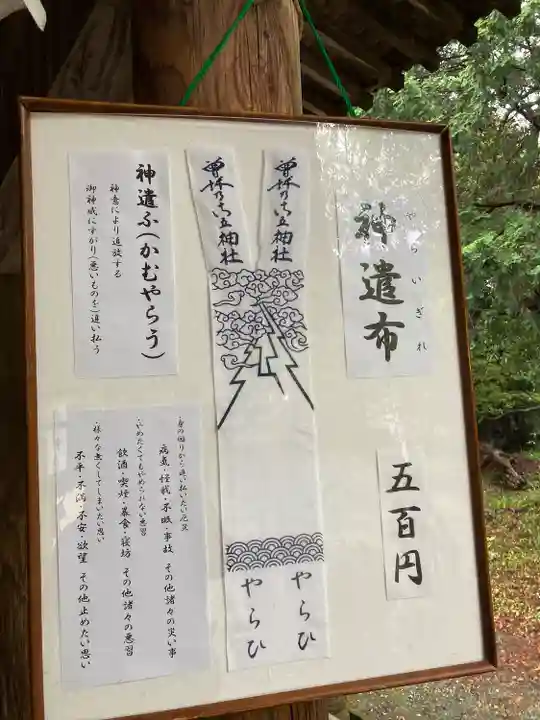 神遣布
やらいぎれ
五百円
神社
神社
やらひ
やらひ
神遣ふ(かむやらう)
神意により追放する
御神威にすがり(悪いものを)追い払う
・身の回りから追い払いたい厄災
病気・怪我・不眠・事故 その他諸々の災い事
・やめたくてもやめられない悪習
飲酒・喫煙・暴食・寝坊 その他諸々の悪習
・様々な無くしてしまいたい思い
不平・不満・不安・欲望 その他止めたい思い